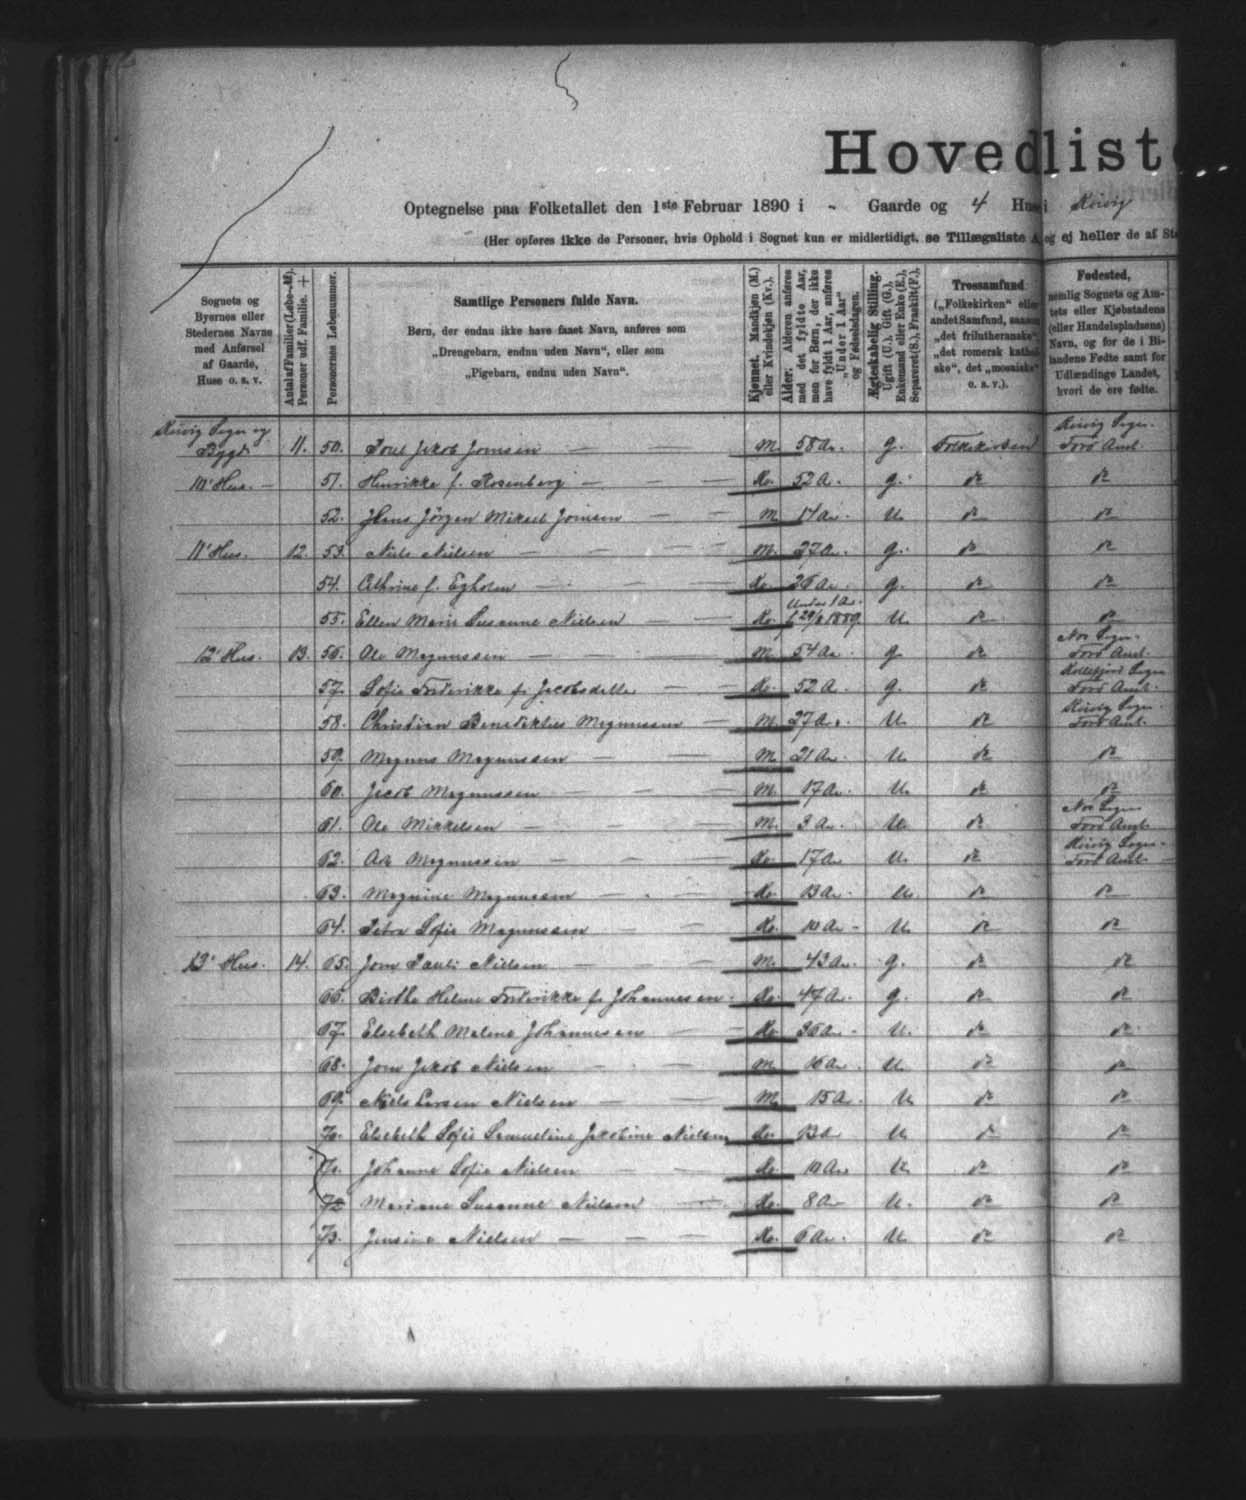 Hovedliste
Optegnelse paa Folketallet den 1ste Februar 1890 i - Gaarde og 4 Huse i
(Her opføres ikke de Personer, hvis Ophold i Sognet kun er midlertidigt, se Tillægsliste A og ej heller de af
Sognets og Byernes eller Stedernes Navne med Anførsel af Gaarde, Huse o. s. v.
Antal af Familier (Løbe-№). Personer udf. Familie. +
Personernes Løbenummer.
Samtlige Personers fulde Navn.
Børn, der endnu ikke have faaet Navn, anføres som
„Drengebarn, endnu uden Navn", eller som
„Pigebarn, endnu uden Navn".
Kjønnet. Mandkjøn (M.) eller Kvindekjøn (Kv.).
Alder. Alderen anføres med det fyldte Aar, men for Børn, der ikke have fyldt 1 Aar, anføres „Under 1 Aar" og Fødselsdagen.
Ægteskabelig Stilling. Ugift (U.), Gift (G.), Enkemand eller Enke (E.), Separeret (S.), Fraskilt (F.).
Trossamfund („Folkekirken" eller andet Samfund, saasom „det frilutheranske", „det romersk katholske", det „mosaiske" o. s. v.).
Fødested, nemlig Sognets og Amtets eller Kjøbstadens (eller Handelspladsens) Navn, og for de i Bilandene Fødte samt for Udlændinge Landet, hvori de ere fødte.
Sogn og Sogn.
Bygd 11. 50. Poul Jakob Joensen M. 58 Aar. g. Folkekirken Amt
10' Hus. 51. Henrikke f. Rosenberg Kv. 52 A. g. do do
52. Hans Jörgen Mikael Joensen M 14 Aar. U. do do
11' Hus. 12. 53. Niels Nielsen M. 27 A. g. do do
54. Cathrine f. Egholm Kv. 26 Aar. g. do do
Under 1 Aar.
55. Ellen Marie Susanne Nielsen Kv. 1889 U. do do
Sogn.
12' Hus. 13. 56. Ole Magnussen M. 54 Aar g do Amt.
Kollefjord Sogn
57. Sofie Frederikke f. Jacobsdatter Kv. 52 A. g. do Amt.
Sogn.
58. Christian Benediktus Magnussen M. 27 Aar. U. do Amt.
59. Magnus Magnussen M 21 Aar. U. do do
60. Jacob Magnussen M. 17 Aar. U. do do
Sogn
61. Ole Mikkelsen M. 3 Aar. U. do Amt
Sogn.
62. Magnussen Kv. 17 Aar U. do Amt
63. Magnine Magnussen Kv. 13 Aar. U. do do
64. Petra Sofie Magnussen Kv. 10 Aar U. do do
13' Hus. 14. 65. Joen Pauli Nielsen M. 43 Aar. g. do do
66. Birthe Helene Frederikke f. Johannesen Kv. 47 A. g. do do
67. Elsebeth Malene Johannesen Kv. 36 Aar U. do do
68. Joen Jakob Nielsen M. 16 Aar. U. do do
69. Niels Larsen Nielsen M. 15 A. U. do do
70. Elsebeth Sofie Samueline Jacobine Nielsen Kv. 13 A U. do do
71. Johanne Sofie Nielsen Kv. 10 Aar U. do do
72 Mariane Susanne Nielsen Kv. 8 Aar U. do do
73. Jensina Nielsen Kv. 6 Aar. U. do do